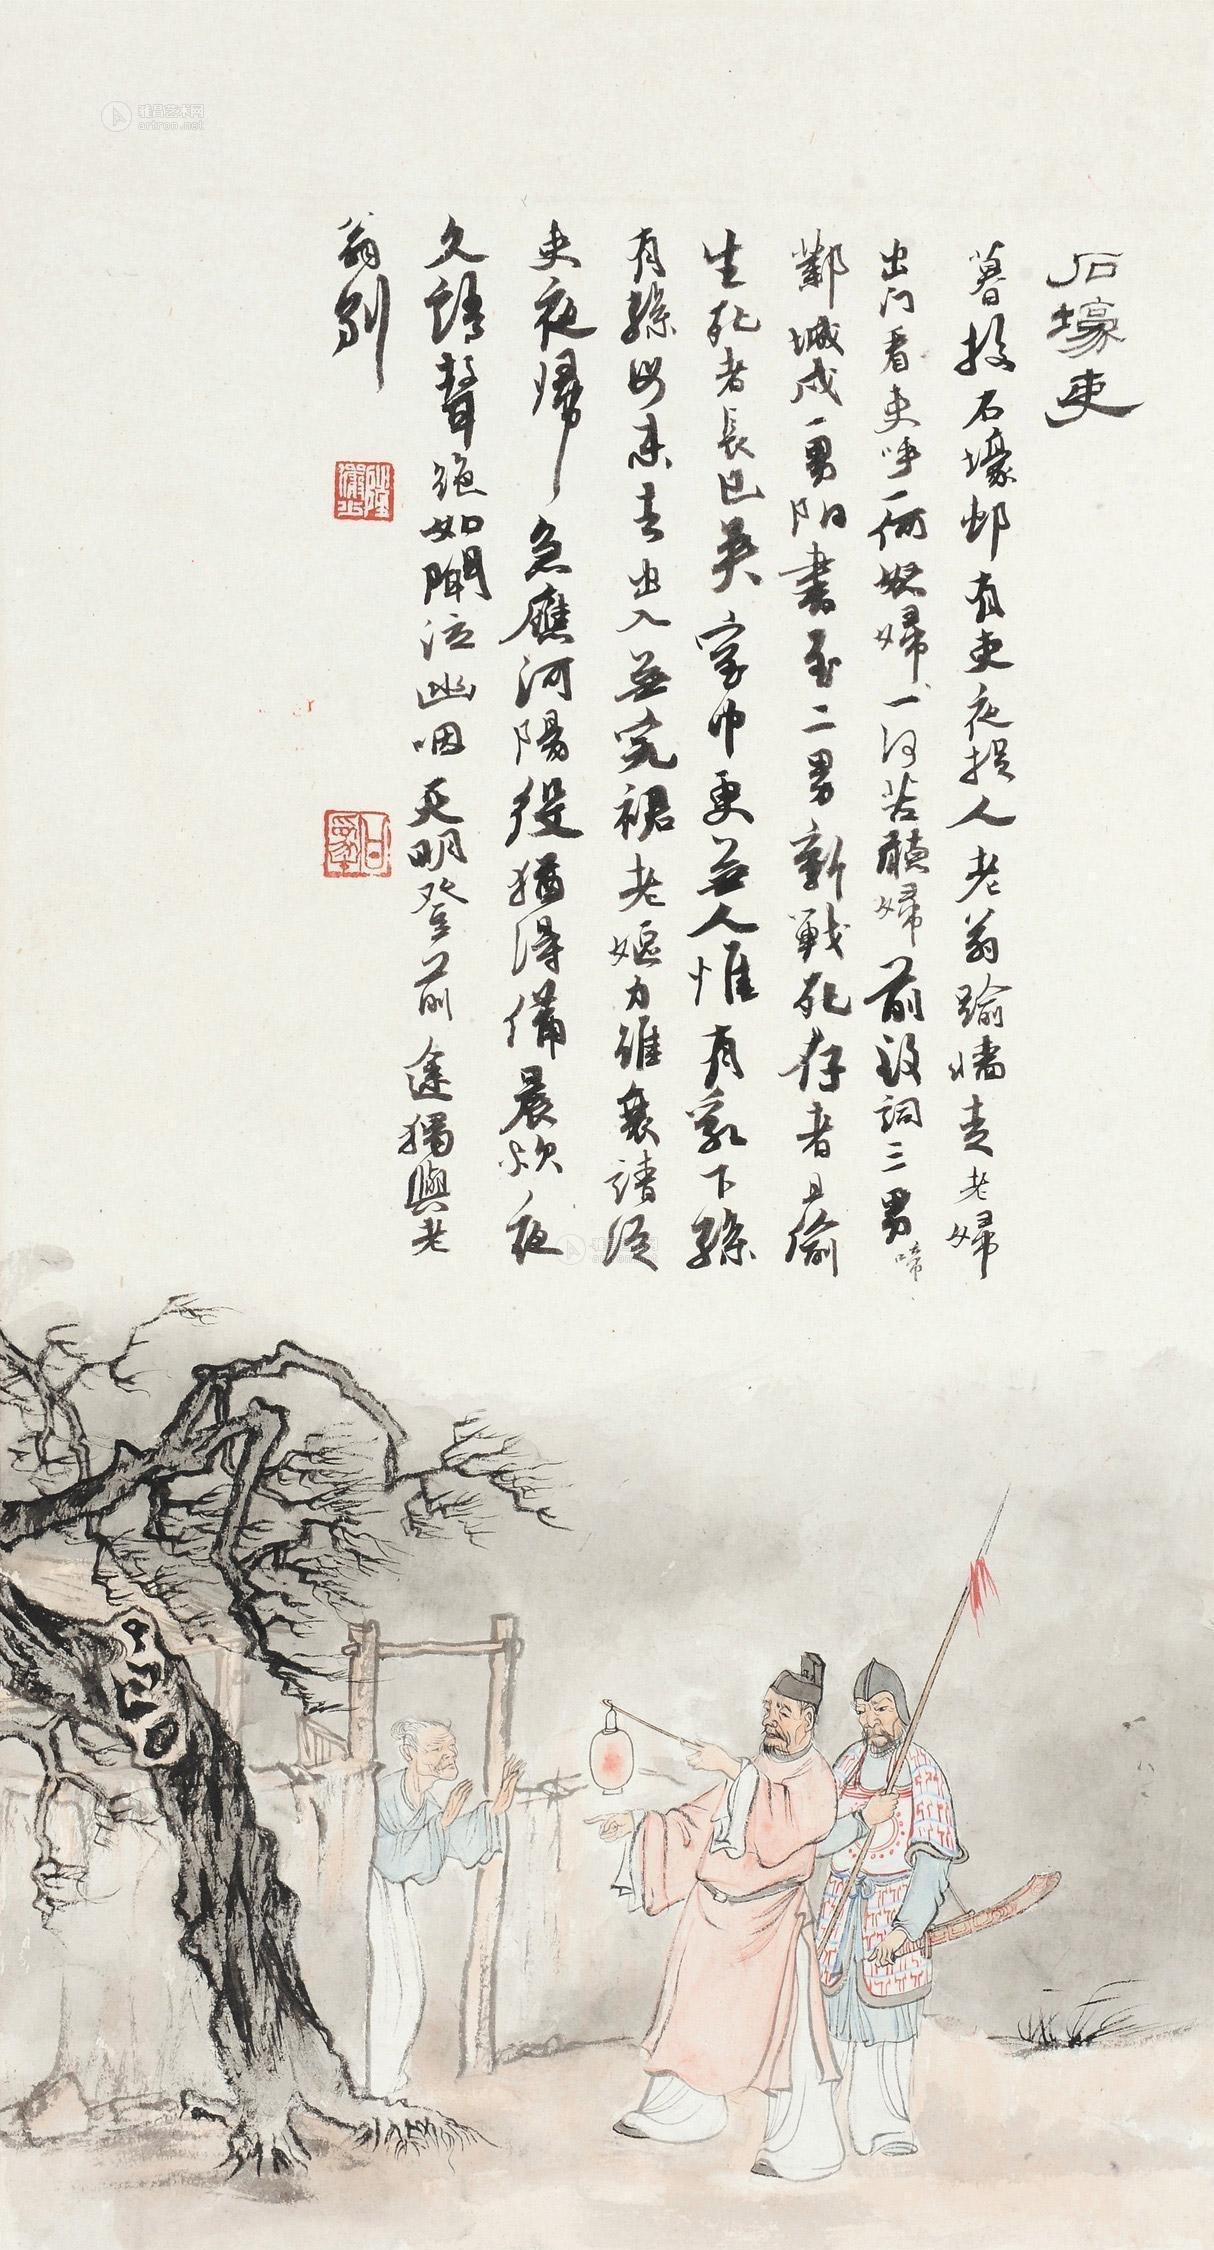 石壕吏
暮投石壕邨有吏夜捉人老翁踰墻走老婦
出门看吏呼一何怒婦一何苦聽婦前致詞三男啼
鄴城戍一男附書至二男新戰死存者且偷
生死者長已矣室中更無人惟有乳下孫
有孫母未去出入無完裙老嫗力雖衰請從
吏夜歸急應河陽役猶得備晨炊夜
久語聲絕如聞泣幽咽天明登前途獨與老
翁別
雅昌艺术网
artron.net